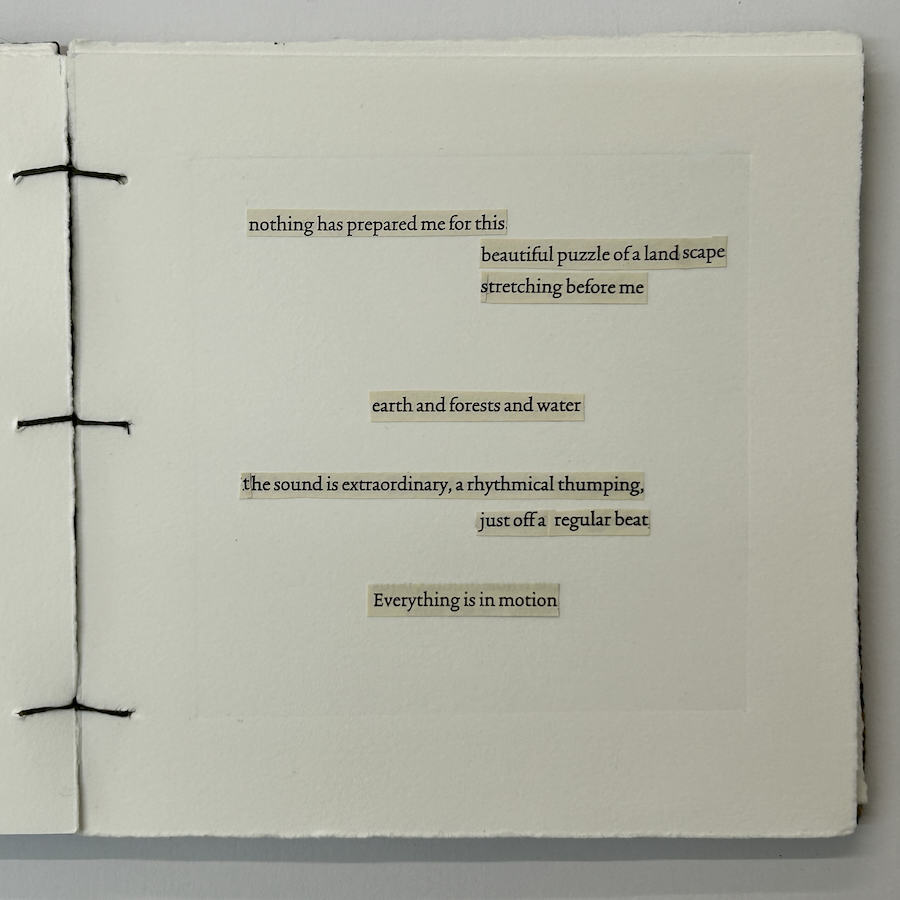 nothing has prepared me for this
beautiful puzzle of a land scape
stretching before me
earth and forests and water
the sound is extraordinary, a rhythmical thumping,
just off a regular beat
Everything is in motion